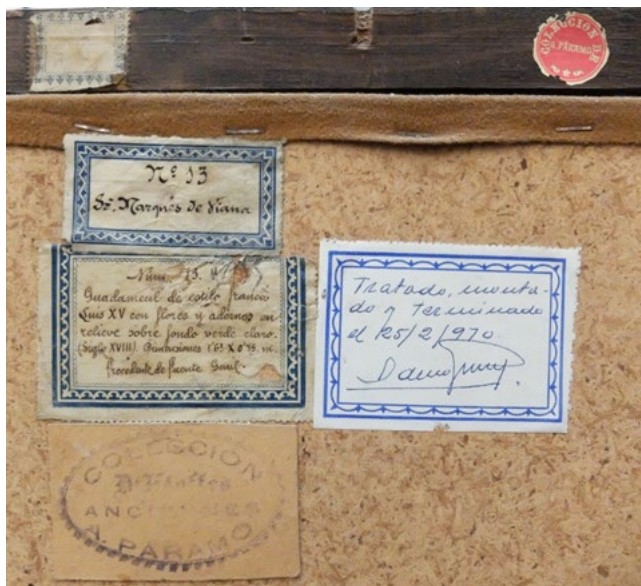 COLECCIÓN DE
A. PÁRAMO
Nº 13
Sr. Marqués de Viana
Núm. 13.
Guadamecil de estilo francés
Luis XV con flores y adornos en
relieve sobre fondo verde claro.
(Siglo XVIII). Dimensiones 1'63 X 0'55 m.
Procedente de Puente Genil.
Tratado, monta-
do y terminado
el 25/2/970
COLECCIÓN
ANCIENNES
A. PARAMO